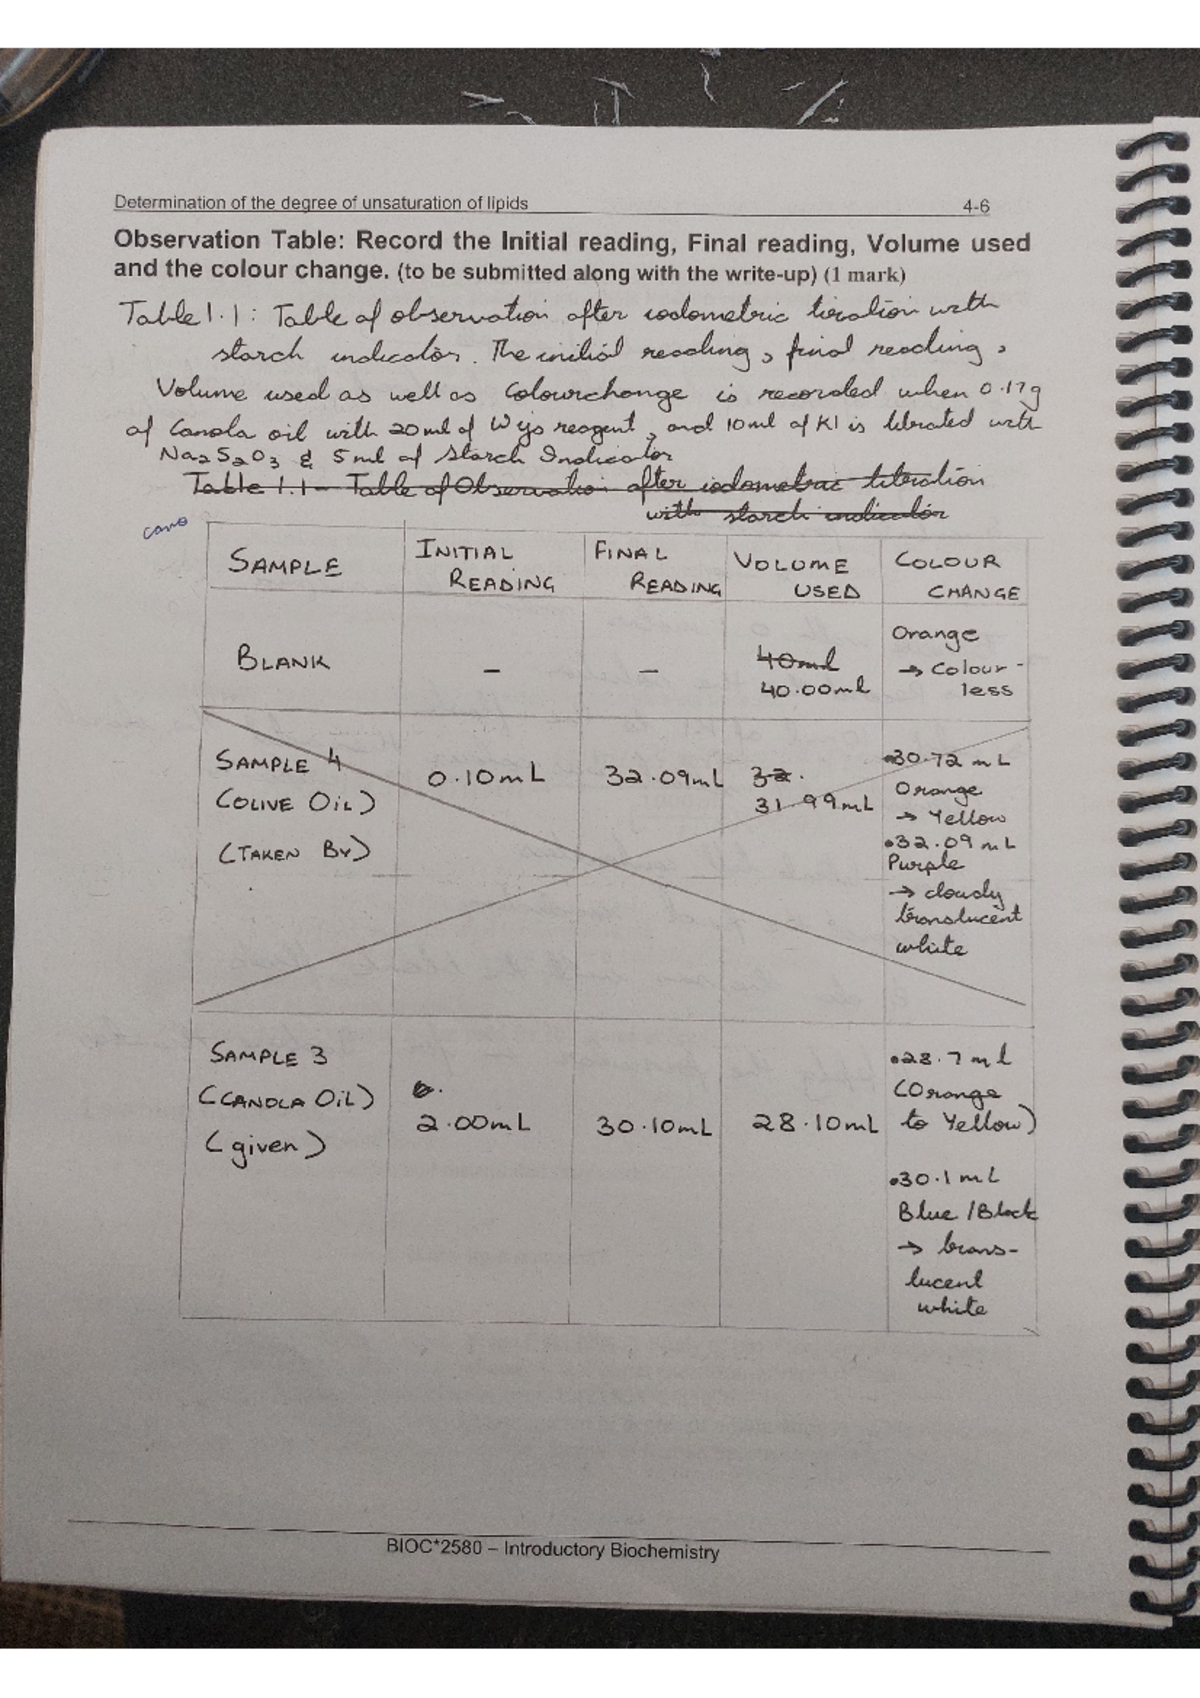 Determination of the degree of unsaturation of lipids 4-6
Observation Table: Record the Initial reading, Final reading, Volume used
and the colour change. (to be submitted along with the write-up) (1 mark)
Table 1.1: Table of observation after iodometric tiration with
starch indicator. The initial reading, final reading,
Volume used as well as Colourchange is recorded when 0.17g
of Canola oil with 20ml of Wijs reagent, and 10ml of KI is titrated with
Na2S2O3 & 5ml of Starch Indicator
Table 1.1 - Table of Observation after iodometric titeration
with starch indicator
cano
SAMPLE
INITIAL
READING
FINAL
READING
VOLUME
USED
COLOUR
CHANGE
BLANK
-
-
40ml
40.00ml
Orange
→ Colour-
less
SAMPLE 4
(OLIVE OIL)
(TAKEN BY)
0.10mL
32.09mL
32.
31.99mL
•30.72 mL
Orange
→ Yellow
•32.09 mL
Purple
→ cloudy
translucent
white
SAMPLE 3
(CANOLA OIL)
(given)
2.00mL
30.10mL
28.10mL
•28.7 ml
(Orange
to Yellow)
•30.1 mL
Blue/Black
→ trans-
lucent
white
BIOC*2580 – Introductory Biochemistry